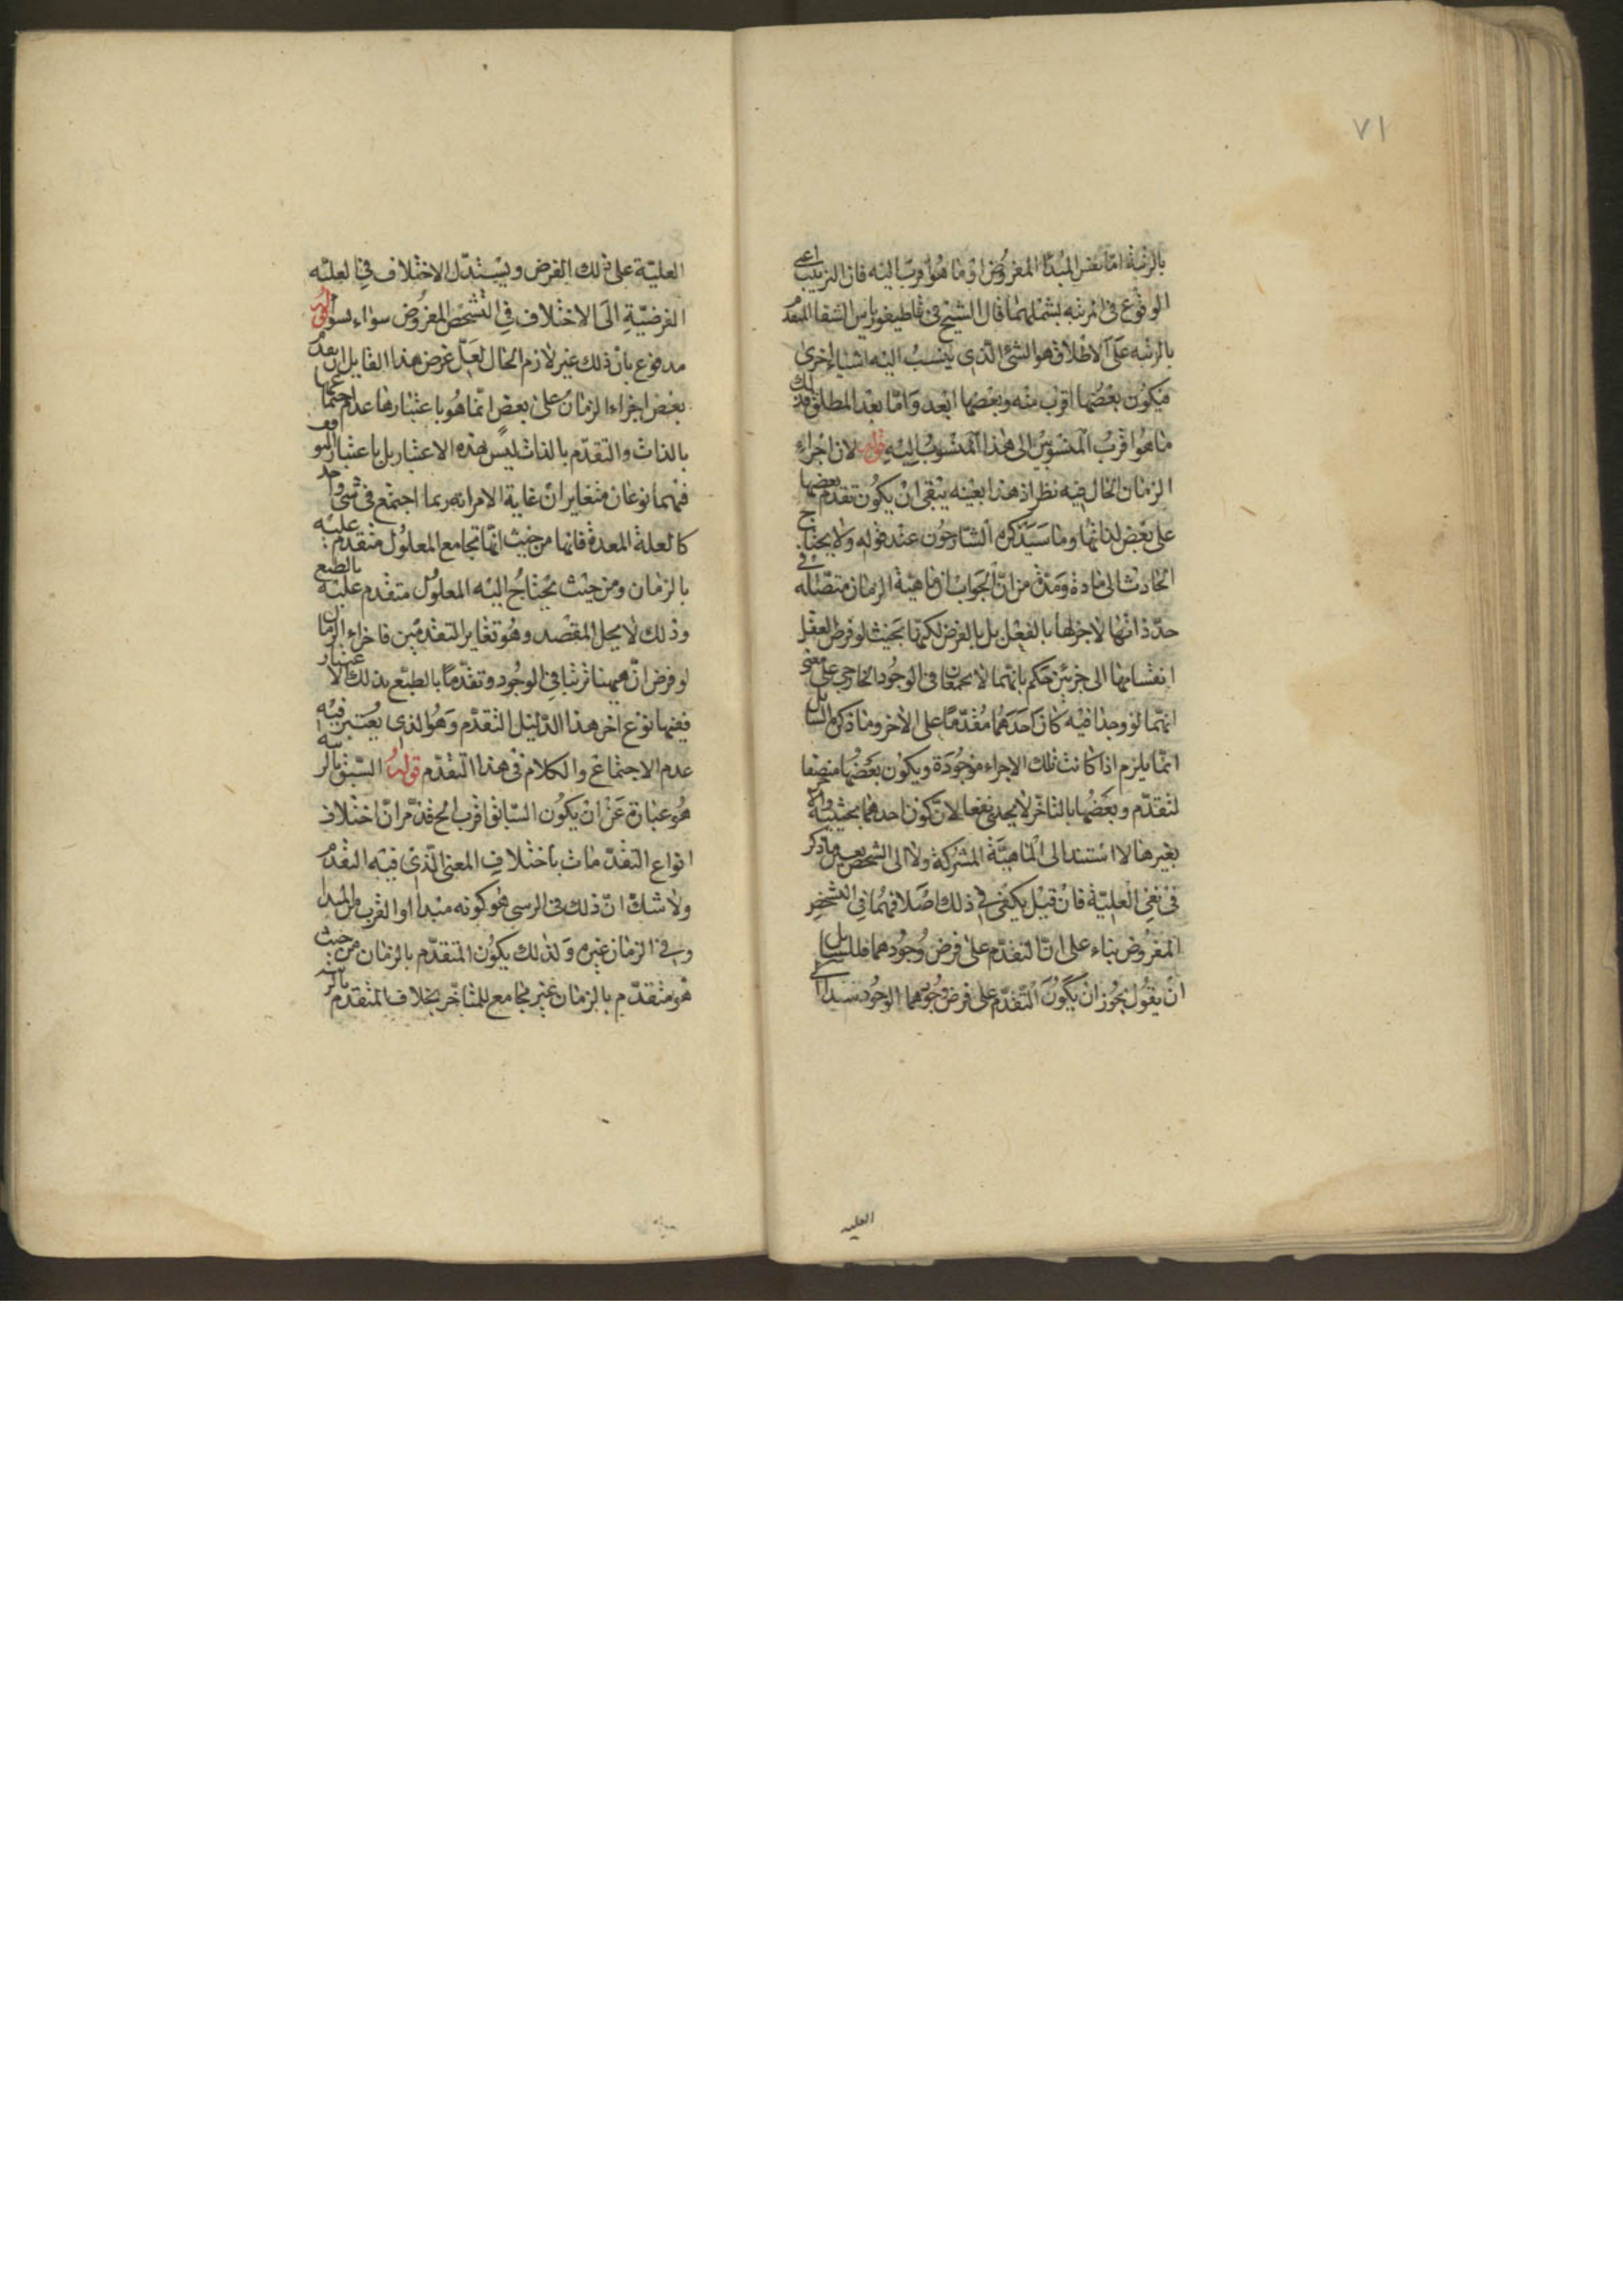 ٧١
بالرتبة امّا نفس المبدا المفروض او ما هو اقرب اليه فان الترتيب اعنى
الوقوع فى المرتبه يشملهما قال الشيخ فى قاطيغورياس الشفا المتقدم
بالرتبه على الاطلاق هو الشئ الذى ينسب اليه اشياء اخرى
فيكون بعضها اقرب منه وبعضها ابعد واما بعد المطلق فذلك
ما هو اقرب المنسوبين الى هذا المنسوب اليه قوله لان اجزاء
الزمان الخال فيه نظر اذ هذا بعينه ينفى ان يكون تقدم بعضها
على بعض لذاتها وما سيذكره الشارحون عند قوله ولا يحتاج
الحادث الى مادة ومدة من ان الجواب ان ماهية الزمان متصلة فى
حدّ ذاتها لا جزء لها بالفعل بل بالفرض لكنها بحيث لو فرض العقل
انقسامها الى جزئين حكم بانهما لا يجمعان فى الوجود الخارجى على معنى
انهما لو وجدا فيه كان احدهما مقدّما على الاخر وما ذكره السائل
انما يلزم اذا كانت تلك الاجزاء موجودة ويكون بعضها متصفا
لتقدّم وبعضها بالتاخر لا يجدى نفعا لان كون احدهما بحيثية وا
بغيرها لا استند الى الماهية المشتركة ولا الى الشخص بعين ما ذكر
فى نفى العلية فان قيل يكفى فى ذلك اصلا فهما فى التشخص
المفروض بناء على ان التقدّم على فرض وجودهما فللسايل
ان يقول يجوز ان يكون التقدّم على فرض وجودهما الوجود مستندا الى
العليه
العليّة على ذلك الفرض ويستدل الاختلاف فى العليه
الفرضيّة الى الاختلاف فى التشخص المفروض سواء بسواء قوله
مدفوع بان ذلك غير لازم الخال لعل غرض هذا القايل ان تقدم
بعض اجزاء الزمان على بعض انما هو باعتبارها عدم اجتماعها
بالذات والتقدّم بالذات ليس بهذه الاعتبار بل باعتبار التوقف
فهما نوعان متغايران غاية الامر انه ربما اجتمع فى شى واحد
كالعلة المعدة فانها من حيث انها تجامع المعلول متقدم عليه
بالزمان ومن حيث يحتاج اليه المعلول متقدم عليه بالطبع
وذلك لا يخل المقصد وهو تغاير التقدمين فاجزاء الزمان
لو فرض انّ ههنا ترتبا فى الوجود وتقدّما بالطبع بذلك الاعتبار
ففيها نوع اخر هذا الدليل التقدّم وهو الذى يعتبر فيه
عدم الاجتماع والكلام فى هذا التقدّم قوله السبق بالرتبه
هو عبارة عن ان يكون السابق اقرب الخ قد مرّ ان اختلاف
انواع التقدّمات باختلاف المعنى الذى فيه التقدم
ولا شك ان ذلك فى الرسى هو كونه مبدا او القرب من المبدا
وفى الزمان غيره ولذلك يكون المتقدّم بالزمان من حيث
هو متقدّم بالزمان غير مجامع للمتاخّر بخلاف المتقدم بالرتبه